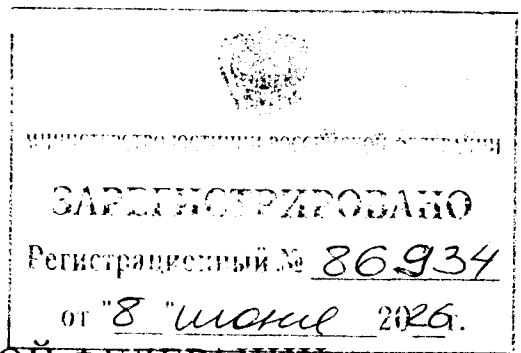 МИНИСТЕРСТВО ЮСТИЦИИ РОССИЙСКОЙ ФЕДЕРАЦИИ
ЗАРЕГИСТРИРОВАНО
Регистрационный № 86934
от "8" июня 2026г.
ОЙ ФЕДЕРАЦИИ